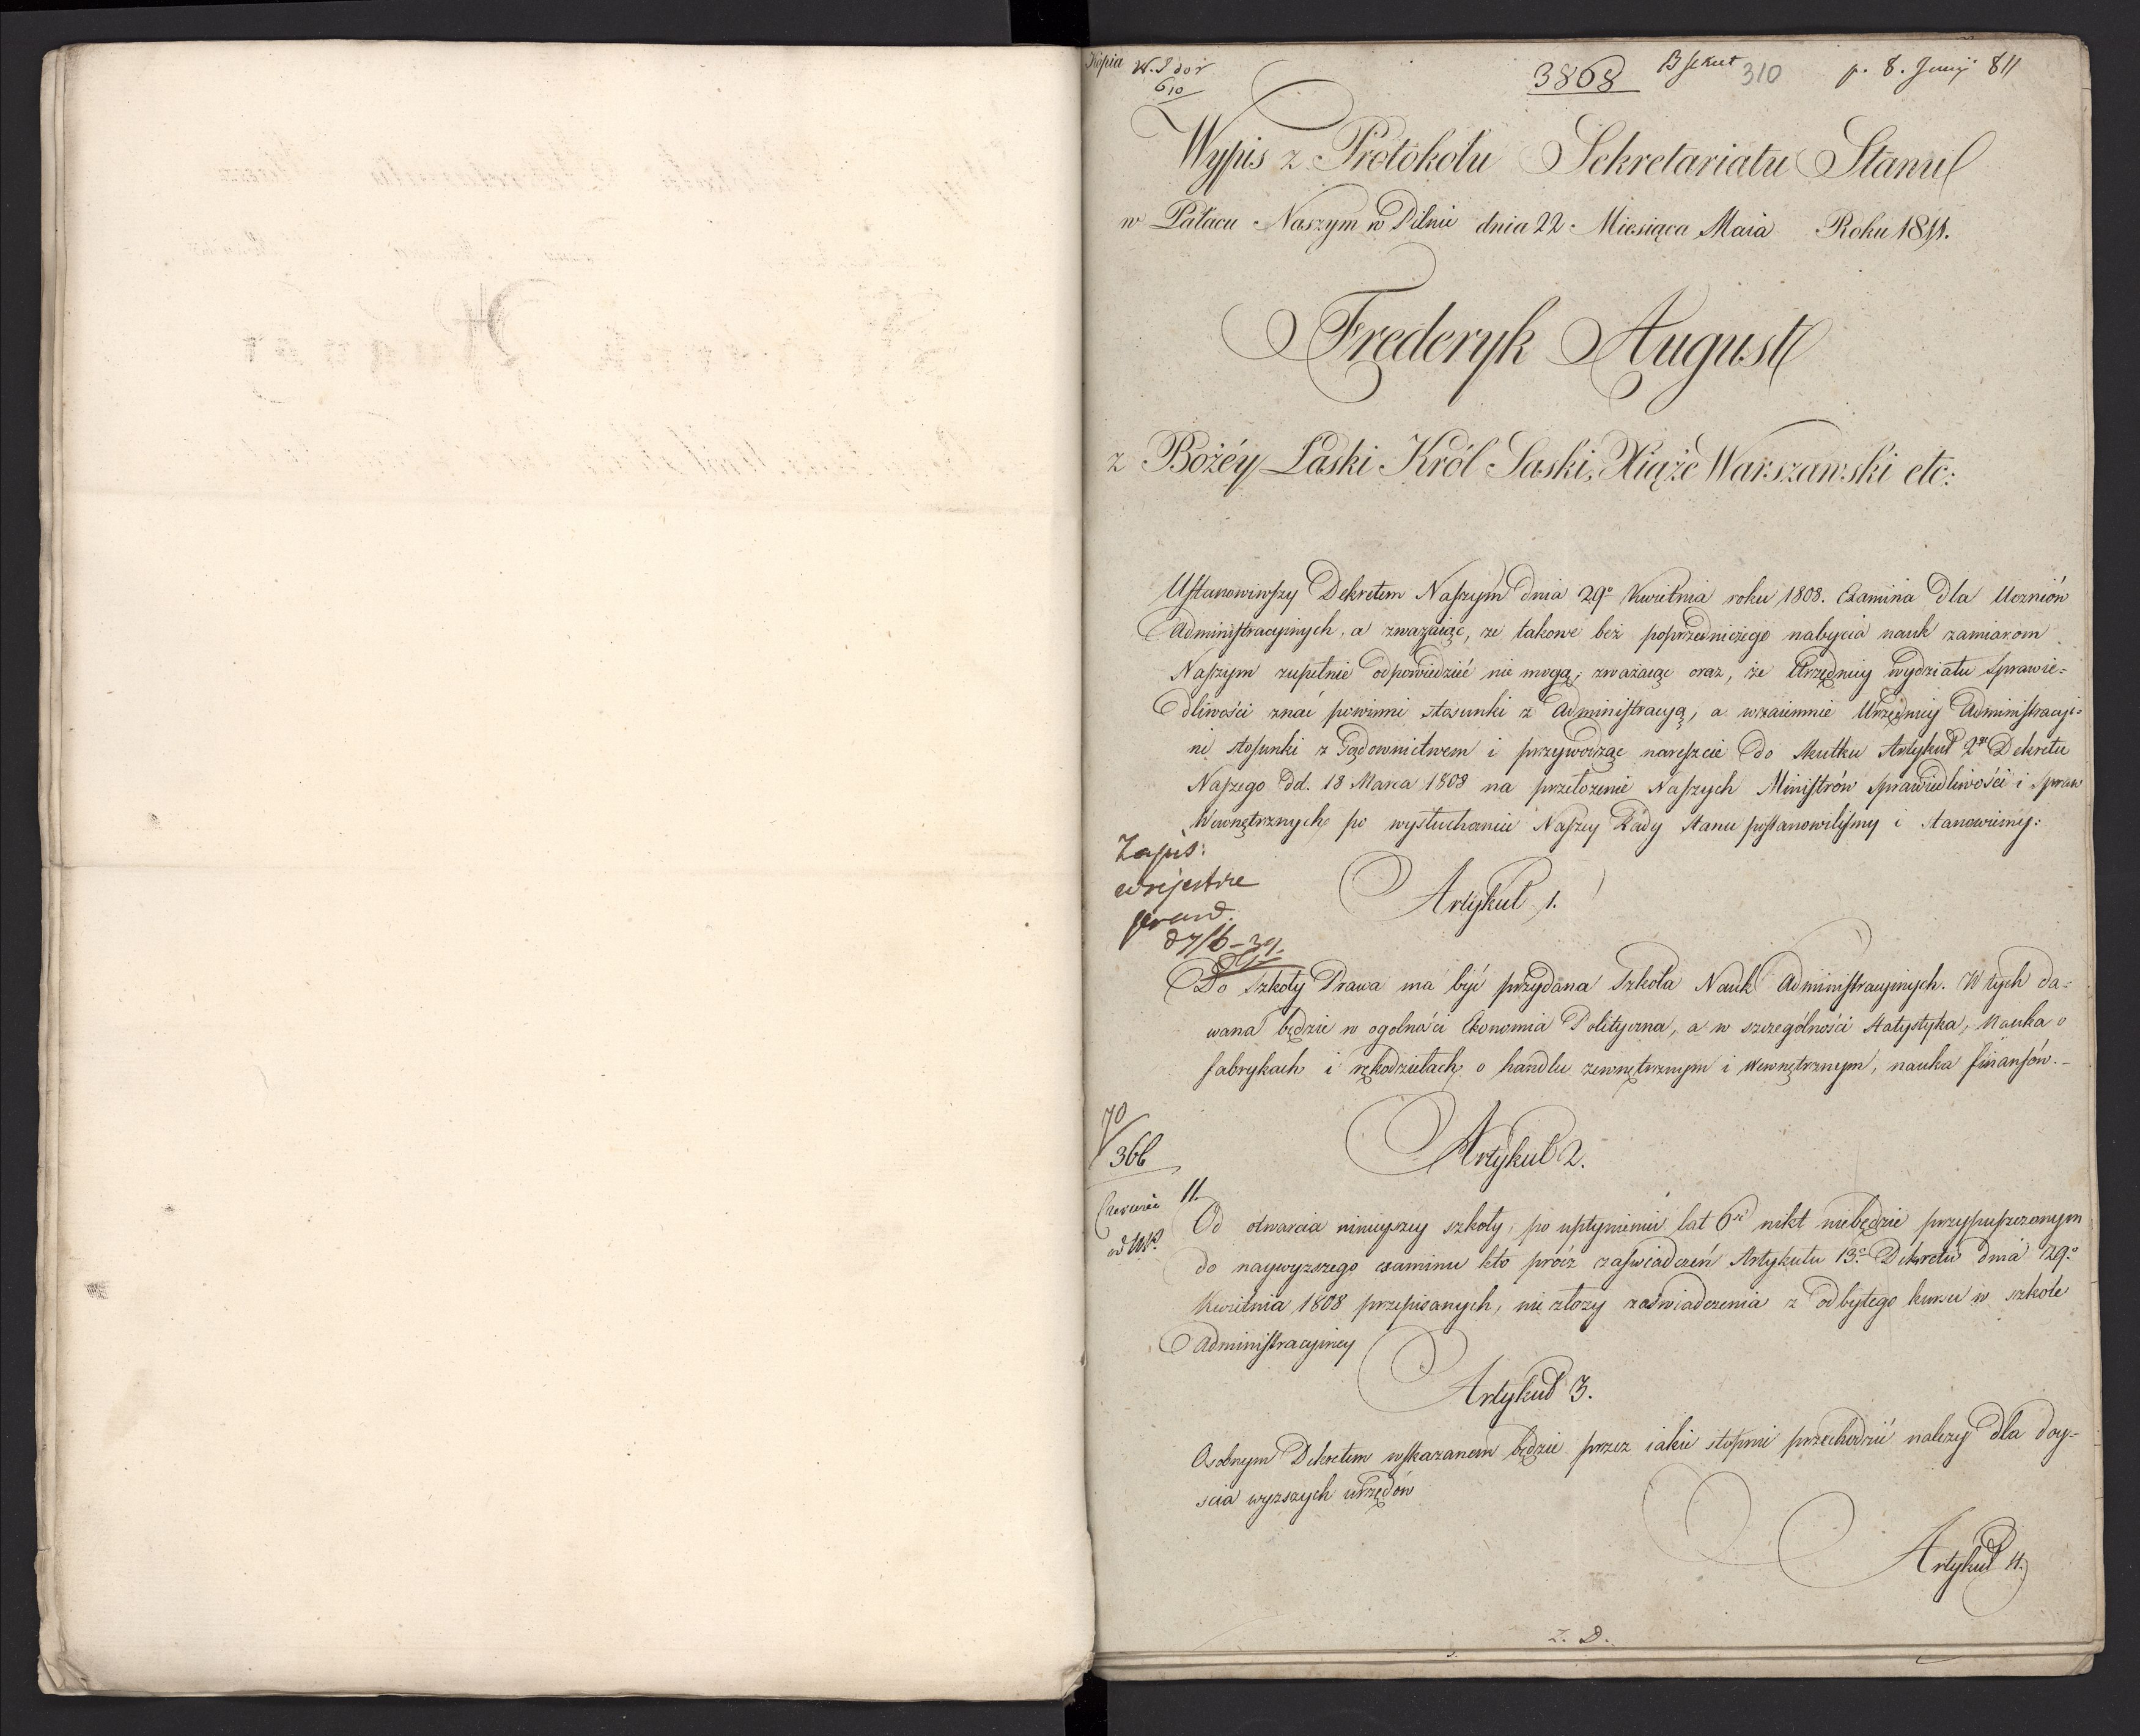 Kopia
3868
310
p. 8. Junij 811
Wypis z Protokołu Sekretariatu Stanu
w Pałacu Naszym w Pilnic dnia 22. Miesiąca Maia Roku 1811.
Frederyk August
z Bożéy Łaski Król Saski, Xiąże Warszawski etc:
Ustanowiwszy Dekretem Naszym dnia 29o Kwietnia roku 1808. Examina dla Uczniów
Administracyinych, a zważaiąc, że takowe bez poprzedniczego nabycia nauk zamiarom
Naszym zupełnie odpowiedzieć nie mogą; zważaiąc oraz, że Urzędnicy wydziału Sprawie=
dliwości znać powinni stosunki z Administracyą, a wzaiemnie Urzędnicy Administracyi=
ni stosunki z Sądownictwem i przywodząc nareszcie do skutku Artykuł 2gi Dekretu
Naszego dd. 18 Marca 1808 na przełożenie Naszych Ministrów Sprawiedliwości i Spraw
Wewnętrznych, po wysłuchaniu Naszey Rady Stanu postanowiliśmy i stanowiemy:
Zapis:
w rejestrze
Artykuł 1.
Do Szkoły Prawa ma być przydana Szkoła Nauk Administracyinych. W tych da=
wana będzie w ogolności Ekonomia Polityczna, a w szczególności Statystyka, Nauka o
fabrykach i rękodziełach, o handlu zewnętrznym i wewnętrznym, nauka finansów.-
70
366
Artykuł 2.
11.
Od otwarcia ninieyszey szkoły, po upłynieniu lat 6ci nikt niebędzie przypuszczonym
do naywyzszego examinu kto prócz zaświadczeń Artykułu 13o Dekretu dnia 29o
Kwietnia 1808 przepisanych, nie złoży zaświadczenia z odbytego kursu w szkole
Administracyiney
Artykuł 3.
Osobnym Dekretem wskazanem będzie przez iakie stopnie przechodzić nalezy dla doy=
scia wyzszych urzędów
Artykuł 4.